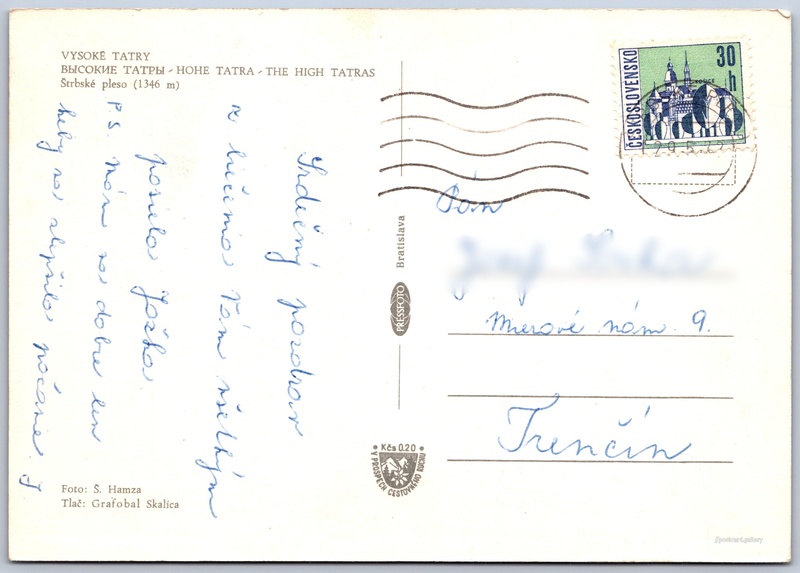 VYSOKÉ TATRY
ВЫСОКИЕ ТАТРЫ - HOHE TATRA - THE HIGH TATRAS
Štrbské pleso (1346 m)
Srdečný pozdrav
z liečenia Vám všetkým
posiela Jožka
P.S. Mám sa dobre len
keby sa zlepšilo počasie. J
Foto: Š. Hamza
Tlač: Grafobal Skalica
Bratislava
PRESSFOTO
Kčs 0.20
V PROSPECH CESTOVNÉHO RUCHU
ČESKOSLOVENSKO
30 h
KOŠICE
Pán
Mierové nám. 9.
Trenčín
postcard.gallery